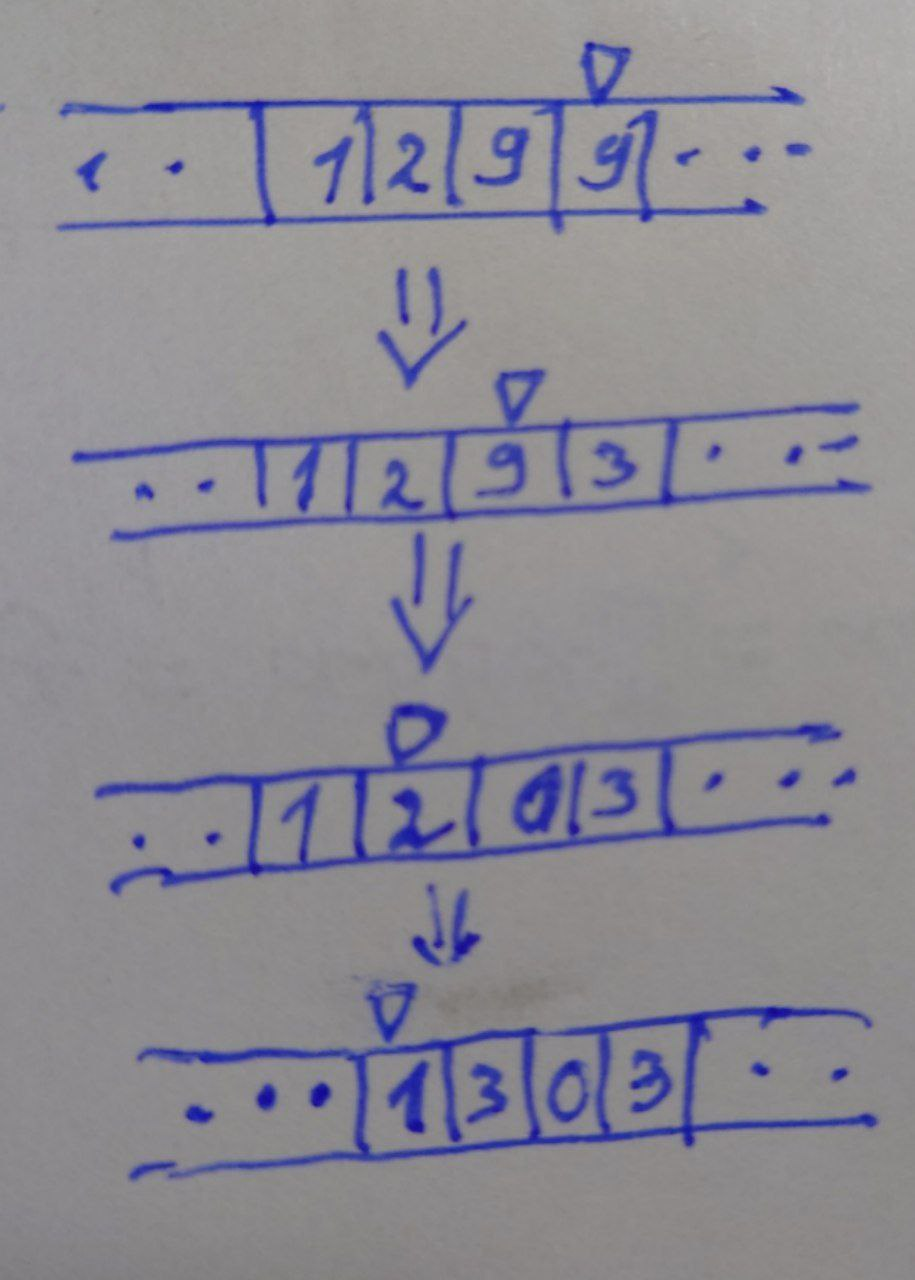 . . 1 2 9 9 . . .
. . 1 2 9 3 . . .
. . 1 2 0 3 . . .
. . . 1 3 0 3 . .